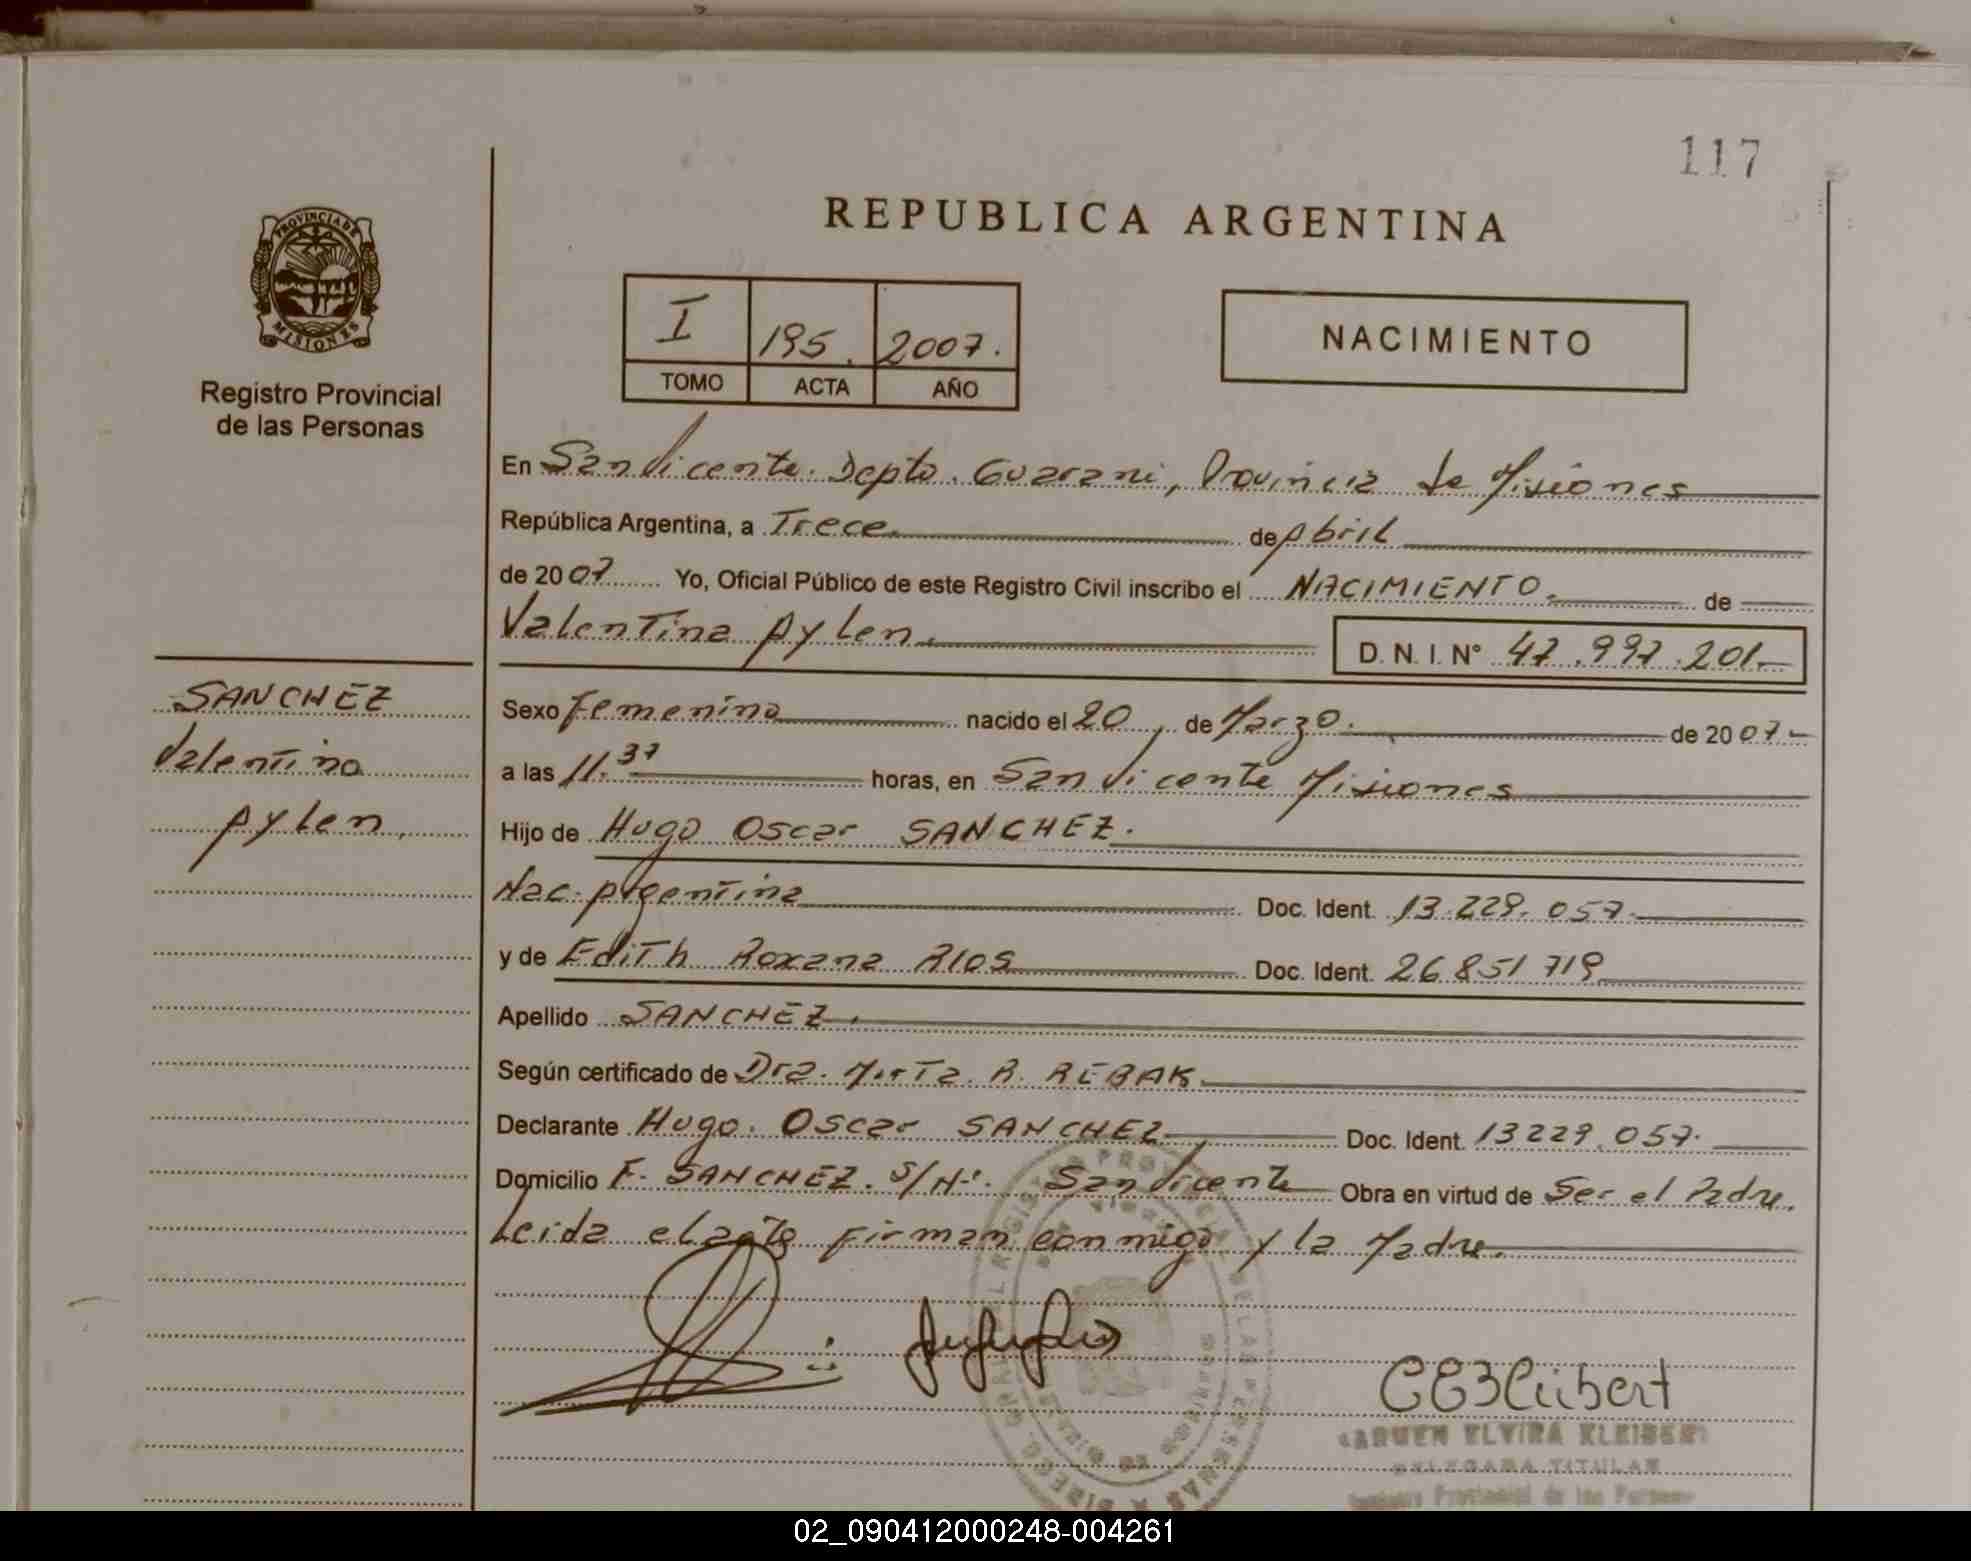 117
REPUBLICA ARGENTINA
PROVINCIA DE
MISIONES
Registro Provincial
de las Personas
I 195. 2007.
TOMO ACTA AÑO
NACIMIENTO
En San Vicente. Depto. Guarani, Provincia de Misiones
República Argentina, a Trece de Abril
de 2007 Yo, Oficial Público de este Registro Civil inscribo el NACIMIENTO. de
Valentina Aylen. D. N. I. N° 47.997.201.-
SANCHEZ
Valentina
Aylen.
Sexo Femenino nacido el 20 de Marzo. de 2007-
a las 11.37 horas, en San Vicente Misiones
Hijo de Hugo Oscar SANCHEZ.
Nac. Argentina Doc. Ident. 13.229.057.
y de Edith Roxana RIOS Doc. Ident. 26.851 719
Apellido SANCHEZ.
Según certificado de Dra. Mirta. R. REBAK
Declarante Hugo. Oscar SANCHEZ Doc. Ident. 13229.057.
Domicilio F. SANCHEZ. S/Nº. San Vicente Obra en virtud de Ser el Padre.
Leida el acta firman conmigo y la Madre.
CARMEN ELVIRA
DELEGADA TITULAR
Registro Provincial de las Personas
02_090412000248-004261